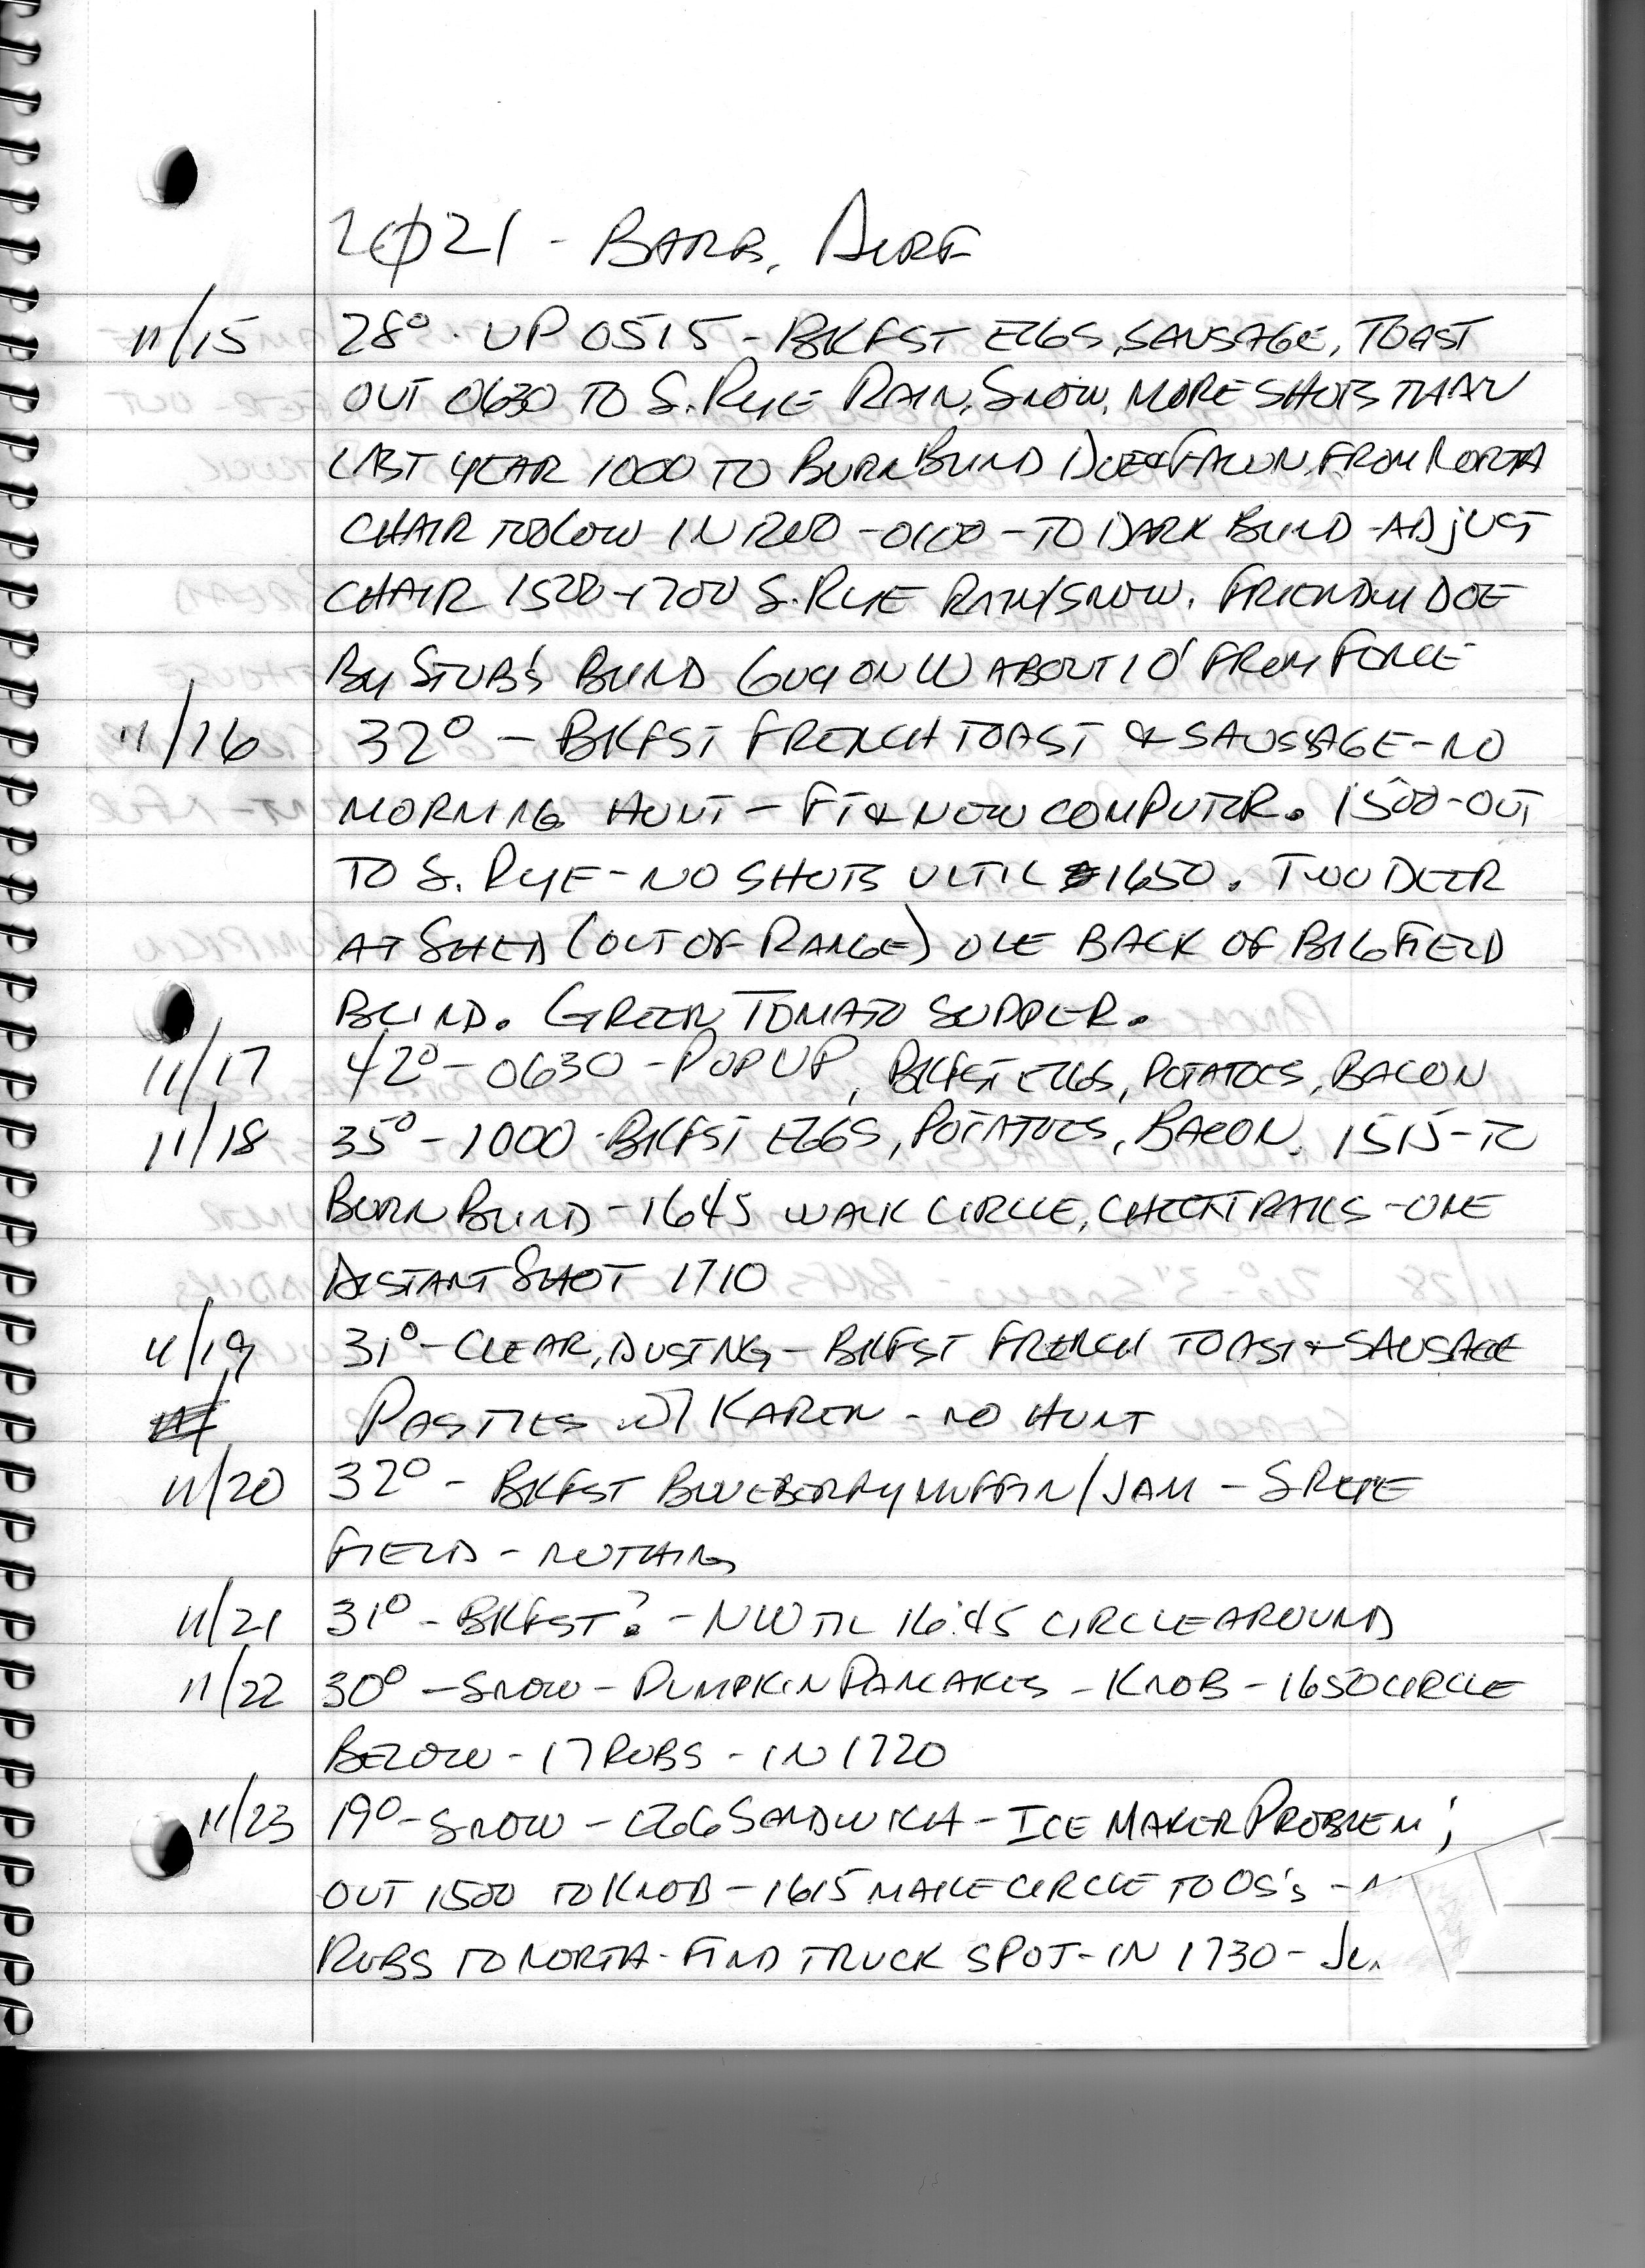 2021 - BARB, ALRE
11/15 28° · UP 0515 - BKFST EGGS, SAUSAGE, TOAST
OUT 0630 TO S. RYE RAIN, SNOW, MORE SHOTS THAN
LAST YEAR 1000 TO BURN BLIND DOE & FAWN FROM NORTH
CHAIR TOO LOW IN - TO DARK BLIND - ADJUST
CHAIR 1500-1700 S. RYE RAIN/SNOW. FRIENDLY DOE
BY STUB'S BLIND GUY ON W ABOUT 10' FROM
11/16 32° - BKFST FRENCH TOAST & SAUSAGE - NO
MORNING HUNT - FT & NEW COMPUTER. 1500 - OUT
TO S. RYE - NO SHOTS UNTIL 1650. TWO DEER
AT SHED (OUT OF RANGE) ONE BACK OF BIG FIELD
BLIND. GREEN TOMATO SUPPER.
11/17 42° - 0630 - POP UP, BKFST EGGS, POTATOES, BACON
11/18 35° - 1000 - BKFST EGGS, POTATOES, BACON. 1515 - TO
BURN BLIND - 1645 WALK CIRCLE, CHECK TRAILS - ONE
DISTANT SHOT 1710
11/19 31° - CLEAR, DUSTING - BKFST FRENCH TOAST & SAUSAGE
PASTIES W/ KAREN - NO HUNT
11/20 32° - BKFST BLUEBERRY MUFFIN/JAM - S RYE
FIELD - NOTHING
11/21 31° - BKFST? - NW TIL 16:45 CIRCLE AROUND
11/22 30° - SNOW - PUMPKIN PANCAKES - KNOB - 1650 CIRCLE
BELOW - 17 RUBS - IN 1720
11/23 19° - SNOW - EGG SANDWICH - ICE MAKER PROBLEM;
OUT 1500 TO KNOB - 1615 MAKE CIRCLE TO OS'S -
RUBS TO NORTH - FIND TRUCK SPOT - IN 1730 -